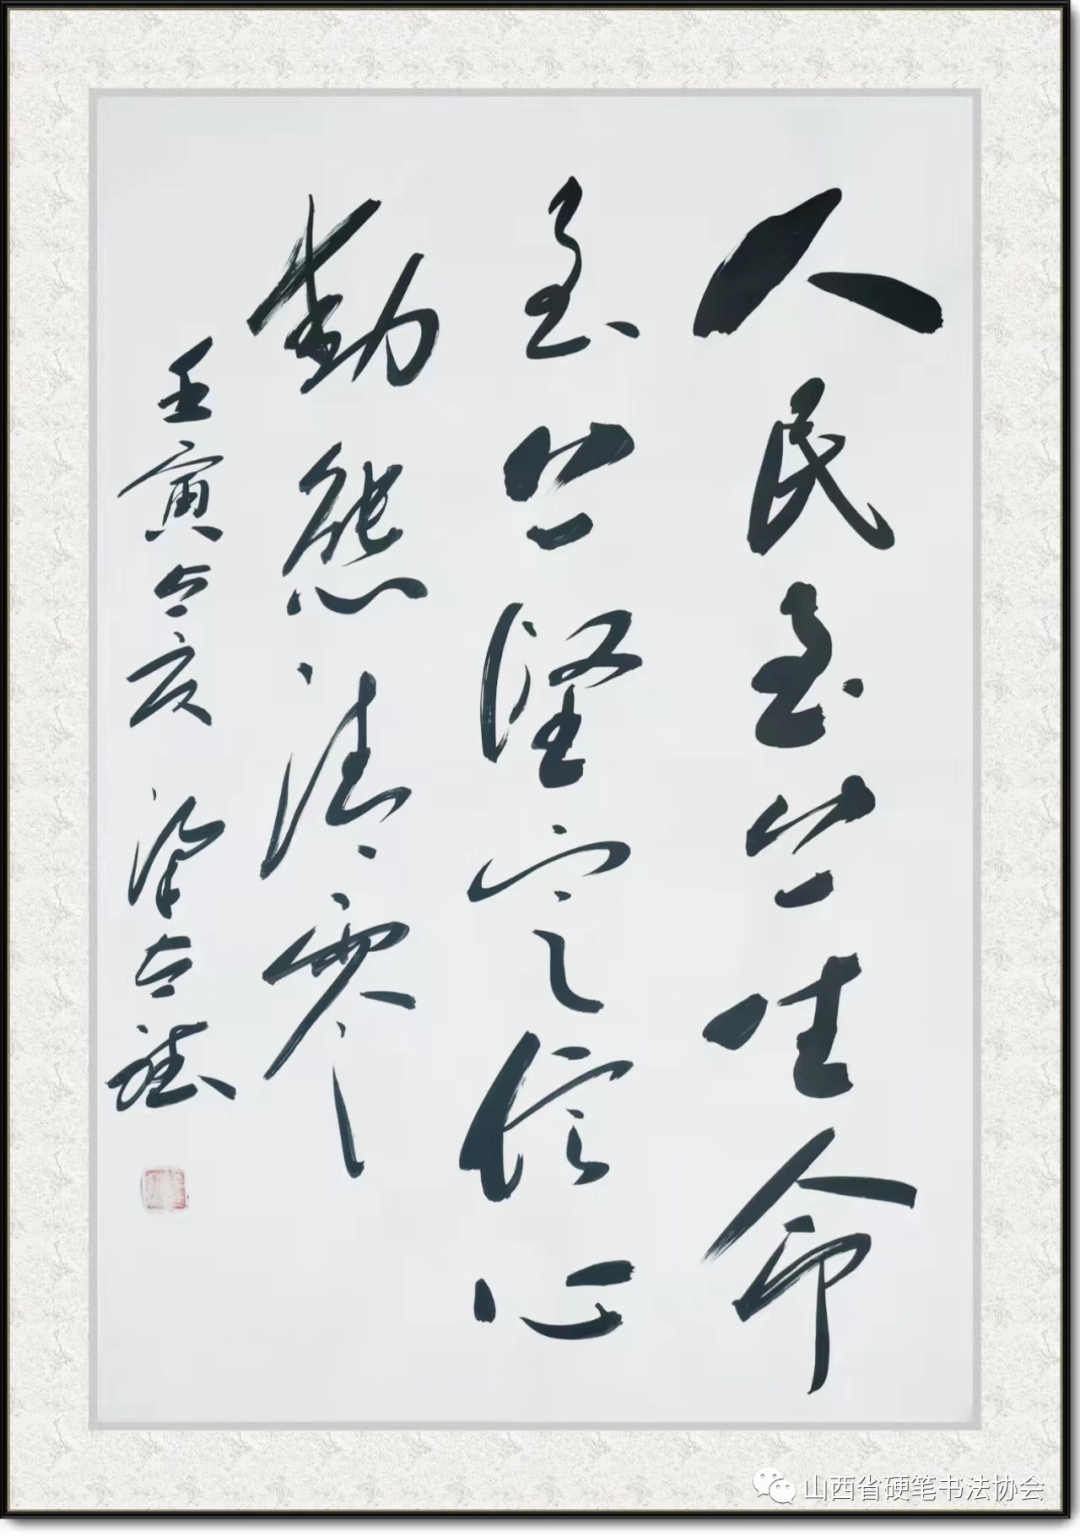 人民至上生命
至上堅定信心
動態清零
壬寅立夏 梁
山西省硬笔书法协会